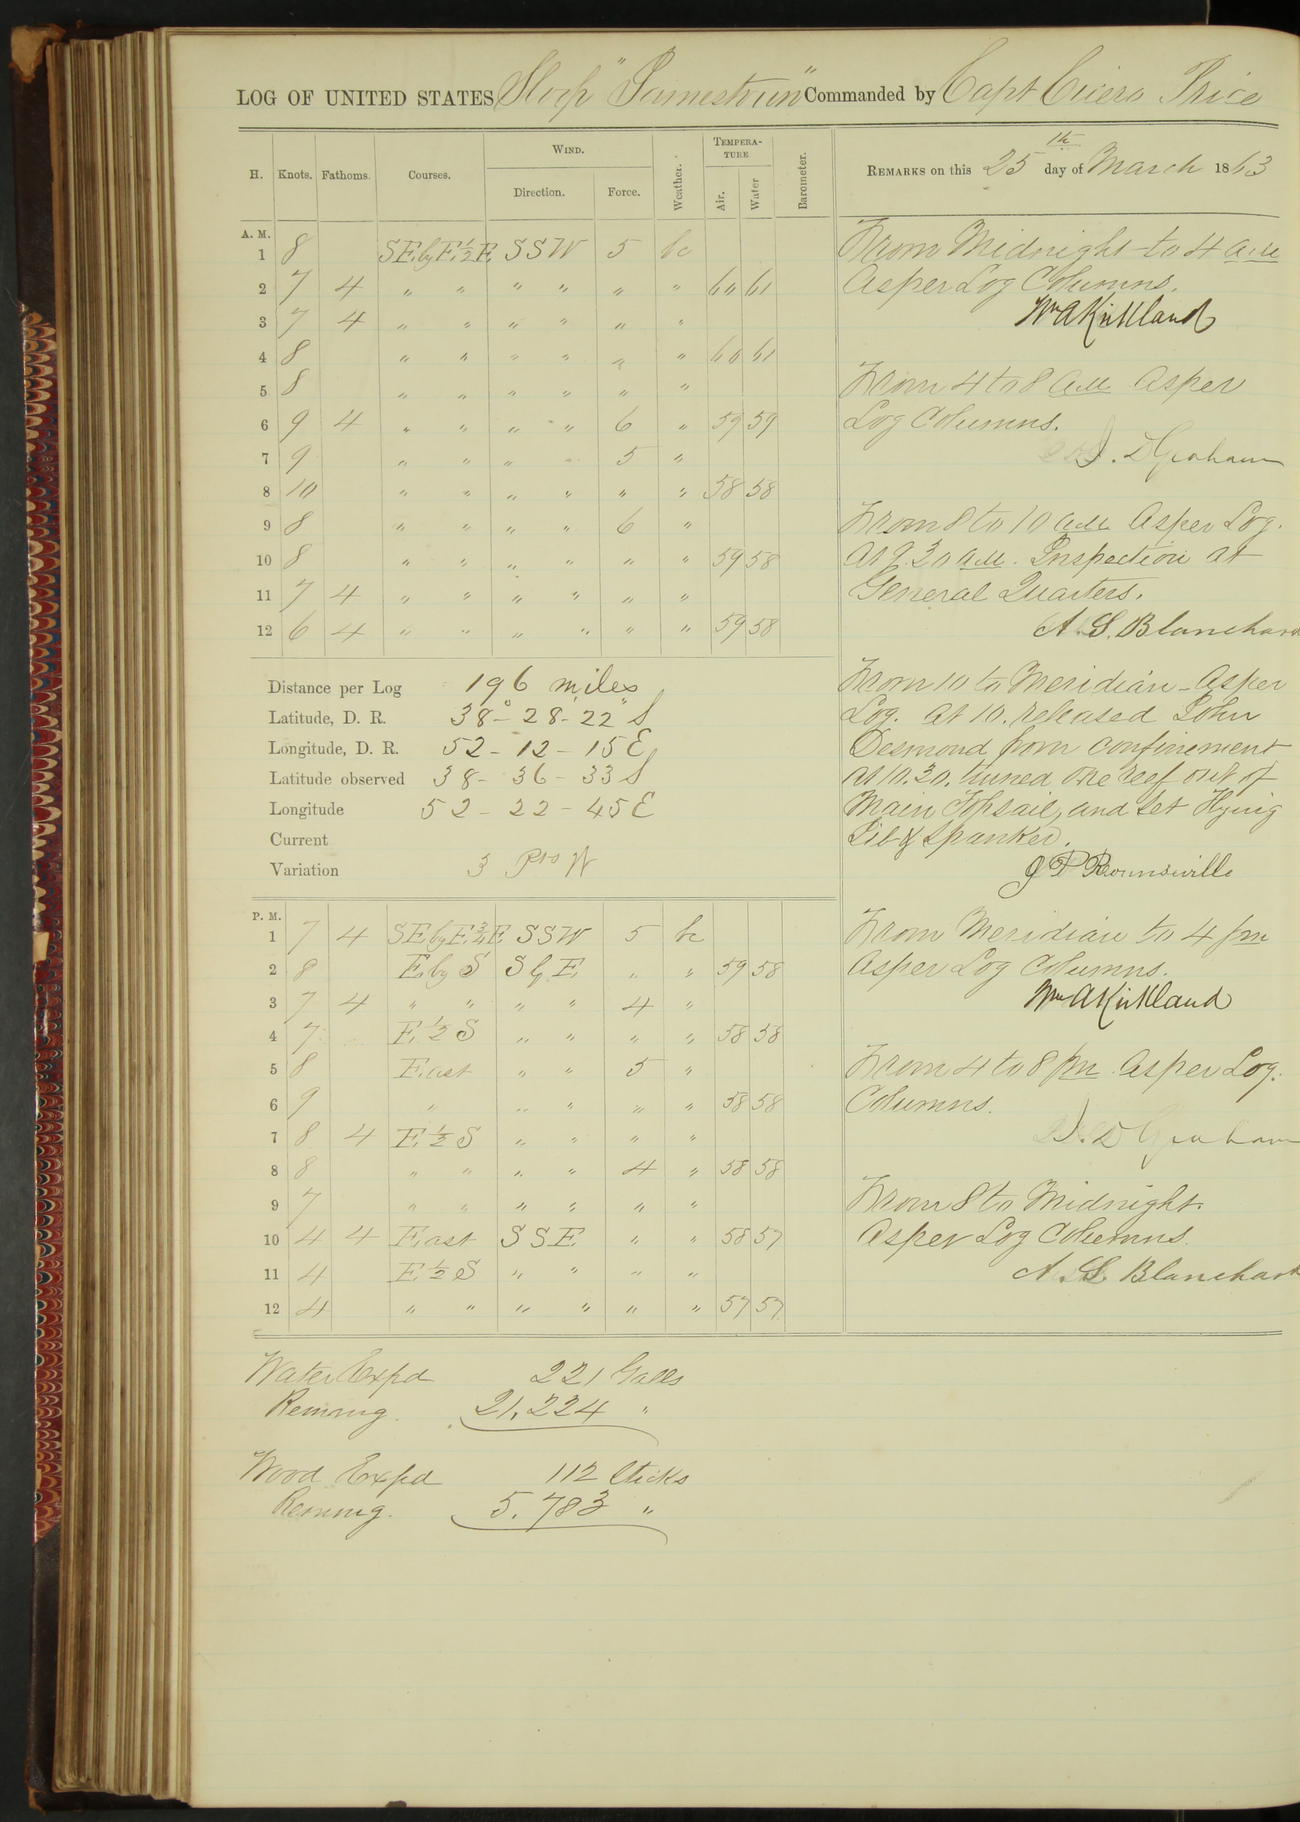 LOG OF UNITED STATES Sloop "Jamestown" Commanded by Capt Cicero Price
H. Knots. Fathoms. Courses. WIND. Direction. Force. Weather. TEMPERATURE Air. Water Barometer.
REMARKS on this 25th day of March 1863
A. M.
1 8 SE by E ½ E SSW 5 bc
2 7 4 " " " " " " 60 61
3 7 4 " " " " " "
4 8 " " " " " " 60 61
5 8 " " " " " "
6 9 4 " " " " 6 " 59 59
7 9 " " " " 5 "
8 10 " " " " " " 58 58
9 8 " " " " 6 "
10 8 " " " " " " 59 58
11 7 4 " " " " " "
12 6 4 " " " " " " 59 58
From Midnight to 4 a.m
As per Log Columns.
Wm A Kirkland
From 4 to 8 a.m. As per
Log Columns.
J. D Graham
From 8 to 10 a.m. As per Log.
At 9.30 a.m. Inspection at
General Quarters.
A. S. Blanchard
Distance per Log 196 miles
Latitude, D. R. 38°-28-22" S
Longitude, D. R. 52-12-15 E
Latitude observed 38-36-33 S
Longitude 52-22-45 E
Current
Variation 3 Pts W
From 10 to Meridian - As per
Log. At 10. released John
Desmond from confinement
At 10.30. turned one reef out of
Main Topsail, and set Flying
Jib & Spanker.
J P Rounsville
P. M.
1 7 4 SE by E ¾ E SSW 5 bc
2 8 E by S S by E " " 59 58
3 7 4 " " " " 4 "
4 7 E ½ S " " " " 58 58
5 8 East " " 5 "
6 9 " " " " " 58 58
7 8 4 E ½ S " " " "
8 8 " " " " 4 " 58 58
9 7 " " " " " "
10 4 4 East SSE " " 58 57
11 4 E ½ S " " " "
12 4 " " " " " " 57 57
From Meridian to 4 pm
As per Log Columns.
Wm A Kirkland
From 4 to 8 pm. As per Log.
Columns.
J. D Graham
From 8 to Midnight.
As per Log Columns.
A. S. Blanchard
Water Expd 221 Galls
Remang. 21,224 "
Wood Expd 112 Sticks
Remng. 5.783 "